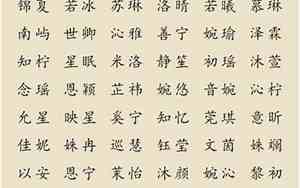 锦夏 若冰 苏琳 洛晴 若曦 慕琳
南屿 世卿 沁雅 善宁 婉瑜 泽霖
知柠 星眠 洛米 静笙 初瑶 沐萱
念瑶 恩颖 芷祎 婉悠 音婉 沁柠
允星 映星 奚宁 知忆 莞琪 意昕
佳妮 姝冉 巡慧 钰莹 文茵 姝娴
以安 恩宁 茉怡 沐颜 婉沁 黎初